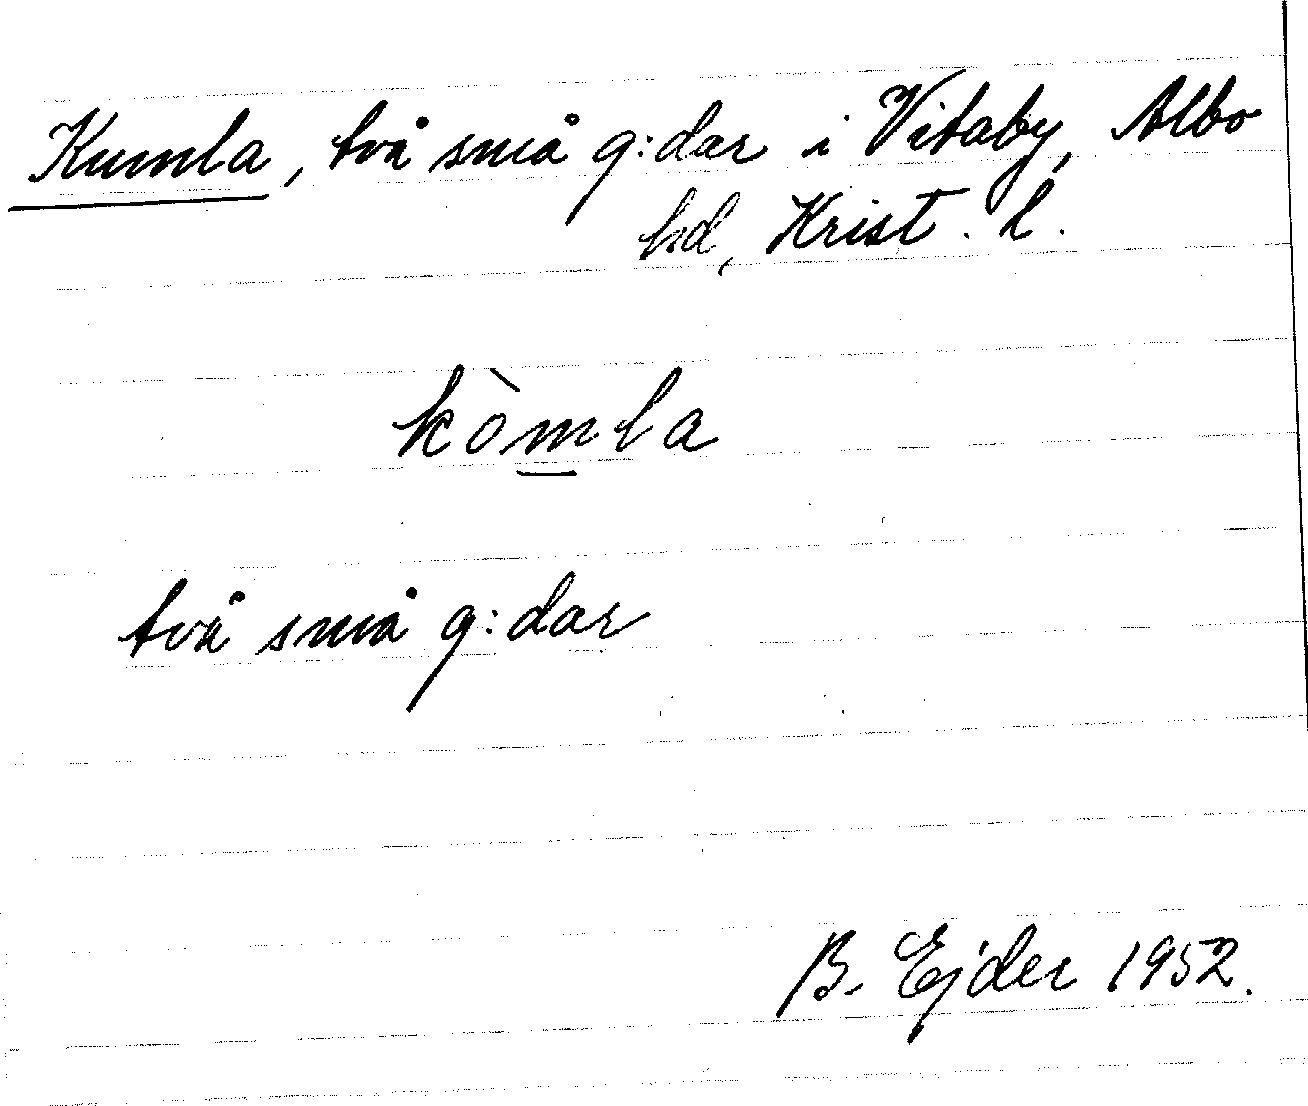 Kumla, två små g:dar i Vitaby, Albo
hd, Krist. l.
kòmla
två små g:dar
B. Ejder 1952.